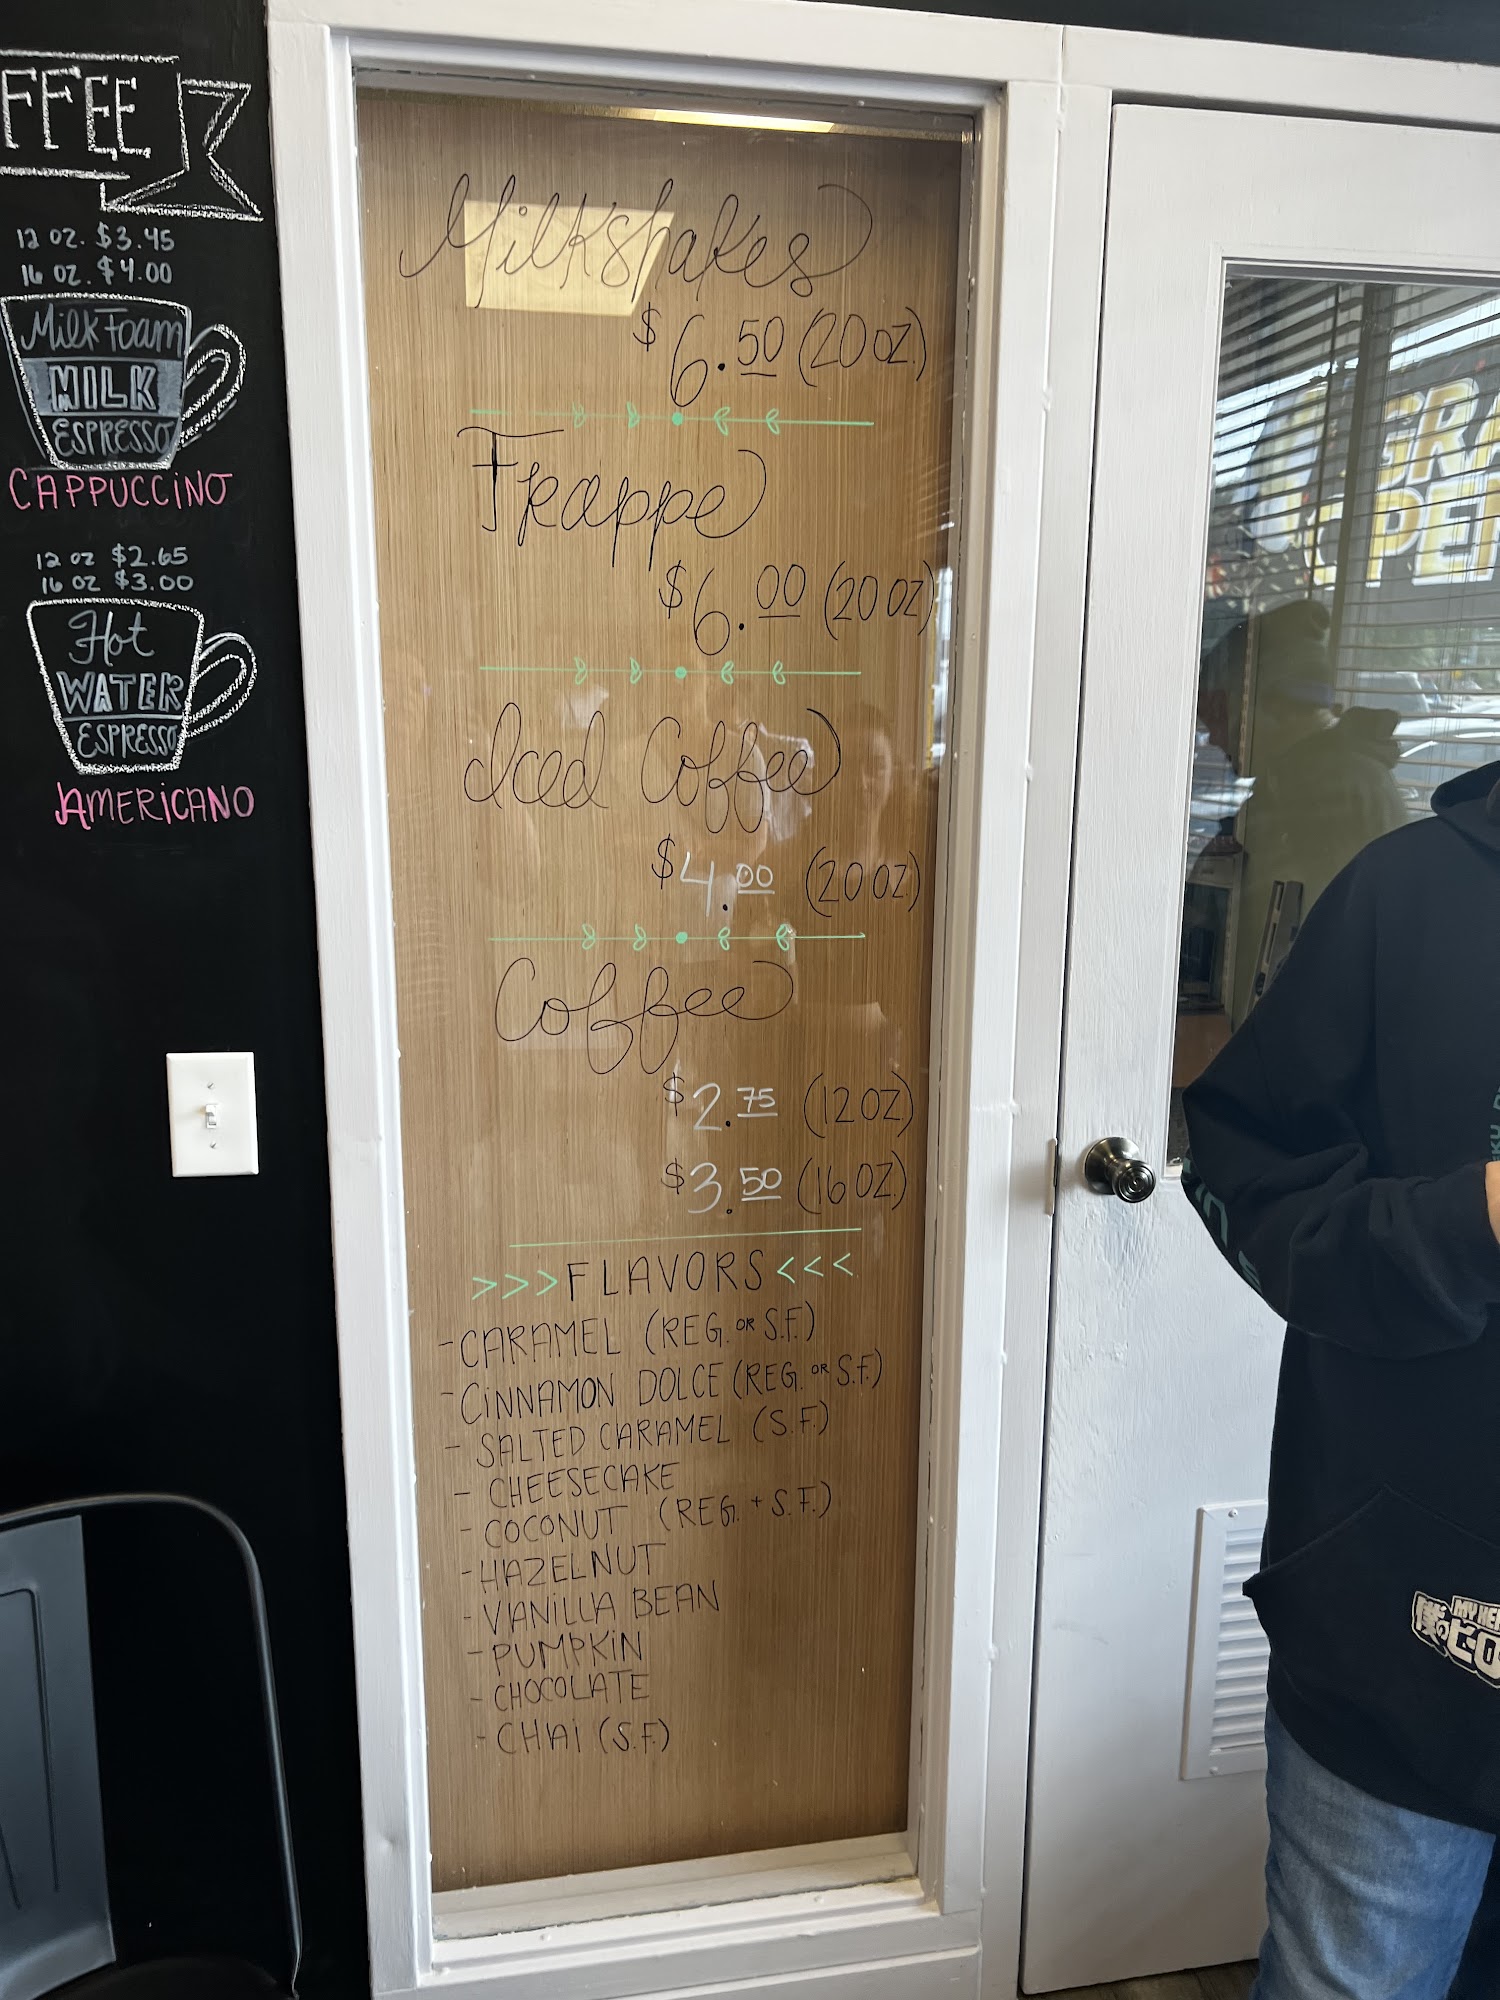 FFEE
12 OZ. $3.45
16 OZ. $4.00
Milk Foam
MILK
ESPRESSO
CAPPUCCINO
12 OZ $2.65
16 OZ $3.00
Hot
WATER
ESPRESSO
AMERICANO
Milkshakes
$6.50 (20 OZ.)
Frappe
$6.00 (20 OZ)
Iced Coffee
$4.00 (20 OZ)
Coffee
$2.75 (12 OZ)
$3.50 (16 OZ.)
>>> FLAVORS <<<
- CARAMEL (REG. OR S.F.)
- CINNAMON DOLCE (REG. OR S.F.)
- SALTED CARAMEL (S.F.)
- CHEESECAKE
- COCONUT (REG. + S.F.)
- HAZELNUT
- VANILLA BEAN
- PUMPKIN
- CHOCOLATE
- CHAI (S.F.)
GRA
OPE
MY HE
僕のヒロ